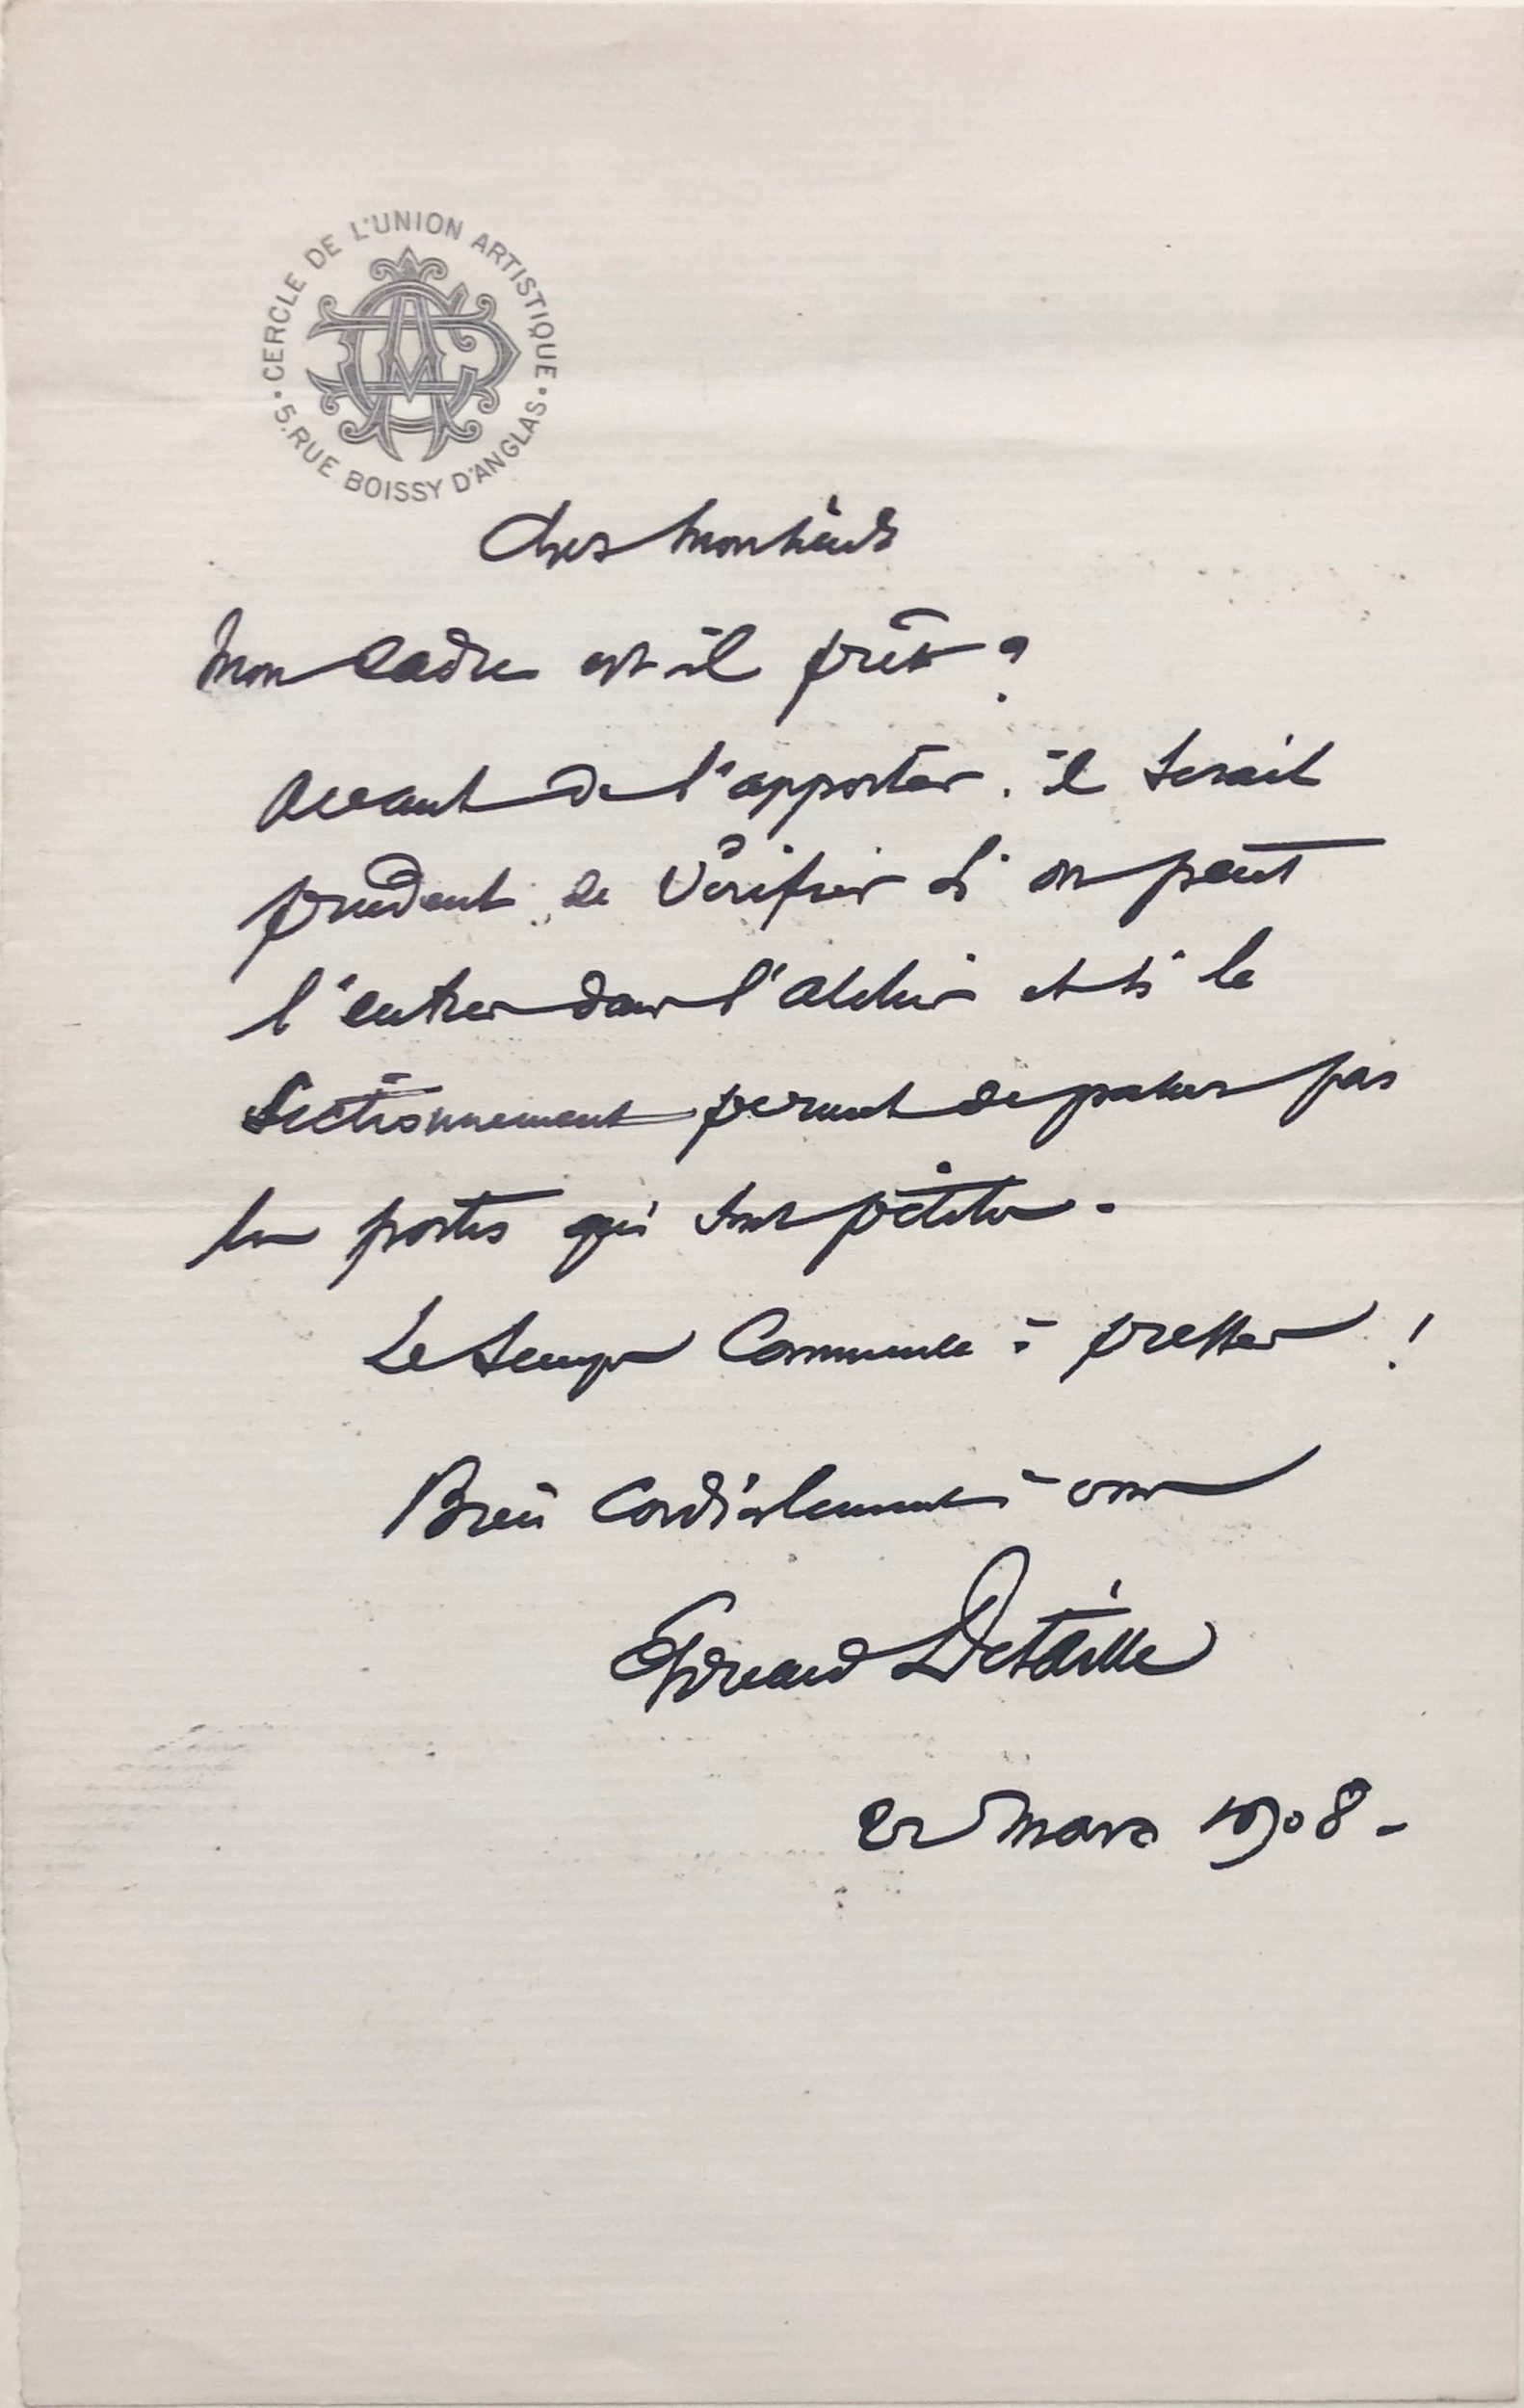 CERCLE DE L'UNION ARTISTIQUE
5. RUE BOISSY D'ANGLAS
Cher Monsieur
Mon cadre est-il prêt ?
Avant de l'apporter, il serait
prudent de vérifier si on peut
l'entrer dans l'atelier et si le
sectionnement permet de passer par
les portes qui sont petites.
Le temps commence à presser !
Bien cordialement à vous
Edouard Detaille
22 mars 1908 -